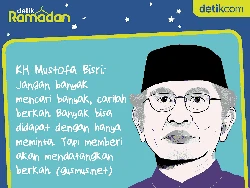 detik
Ramadan
detikcom
KH Mustofa Bisri:
Jangan banyak
mencari banyak, carilah
berkah. Banyak bisa
didapat dengan hanya
meminta. Tapi memberi
akan mendatangkan
berkah. (gusmus.net)